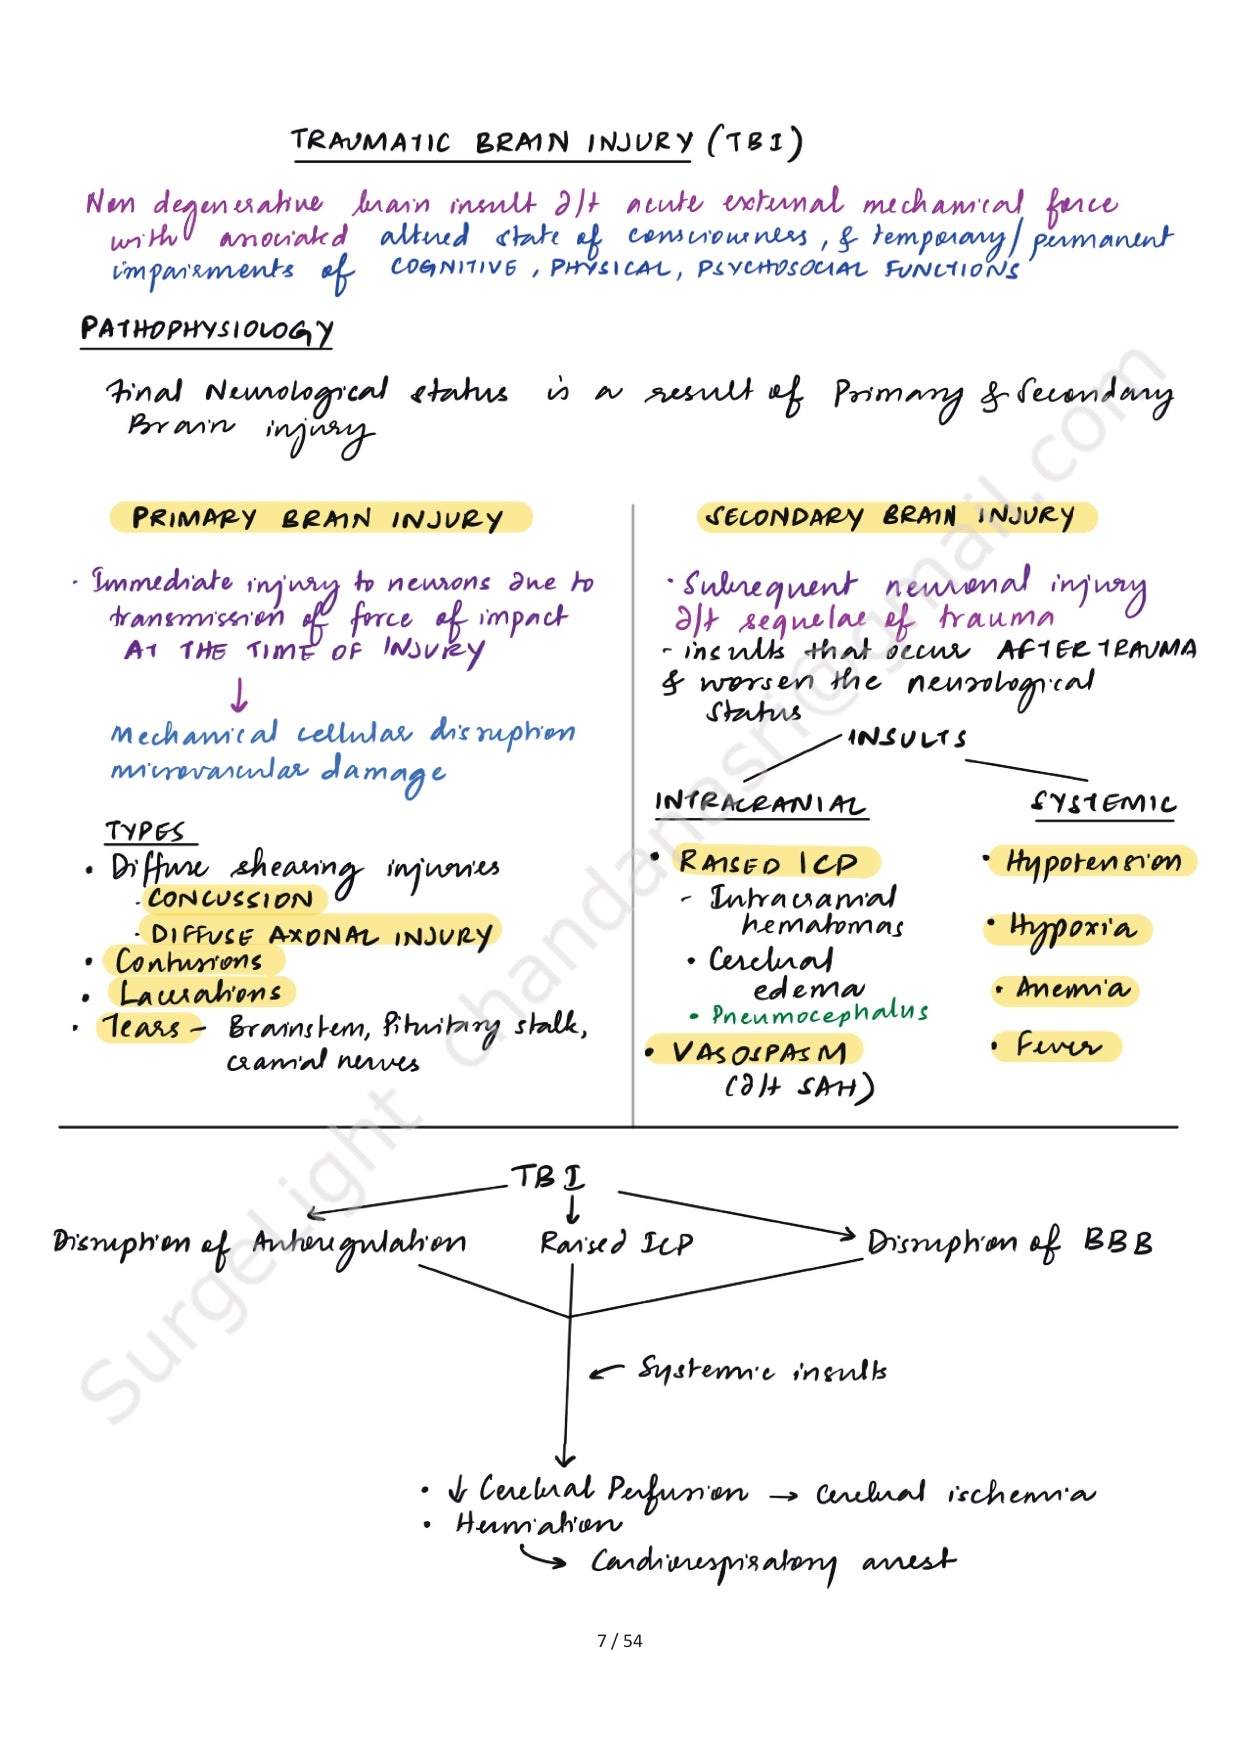 TRAUMATIC BRAIN INJURY (TBI)
Non degenerative brain insult d/t acute external mechanical force
with associated altered state of consciousness, & temporary/permanent
impairments of COGNITIVE, PHYSICAL, PSYCHOSOCIAL FUNCTIONS
PATHOPHYSIOLOGY
Final Neurological status is a result of Primary & Secondary
Brain injury
PRIMARY BRAIN INJURY
· Immediate injury to neurons due to
transmission of force of impact
AT THE TIME OF INJURY
↓
Mechanical cellular disruption
microvascular damage
TYPES
• Diffuse shearing injuries
- CONCUSSION
- DIFFUSE AXONAL INJURY
• Contusions
• Lacerations
• Tears - Brainstem, Pituitary stalk,
cranial nerves
SECONDARY BRAIN INJURY
· Subsequent neuronal injury
d/t sequelae of trauma
- insults that occur AFTER TRAUMA
& worsen the neurological
status
INSULTS
INTRACRANIAL
• RAISED ICP
- Intracranial
hematomas
• Cerebral
edema
• Pneumocephalus
• VASOSPASM
(d/t SAH)
SYSTEMIC
• Hypotension
• Hypoxia
• Anemia
• Fever
TBI
Disruption of Autoregulation
Raised ICP
Disruption of BBB
← Systemic insults
• ↓ Cerebral Perfusion → Cerebral ischemia
• Herniation
→ Cardiorespiratory arrest
SurgeLight chandanasri@gmail.com
7 / 54